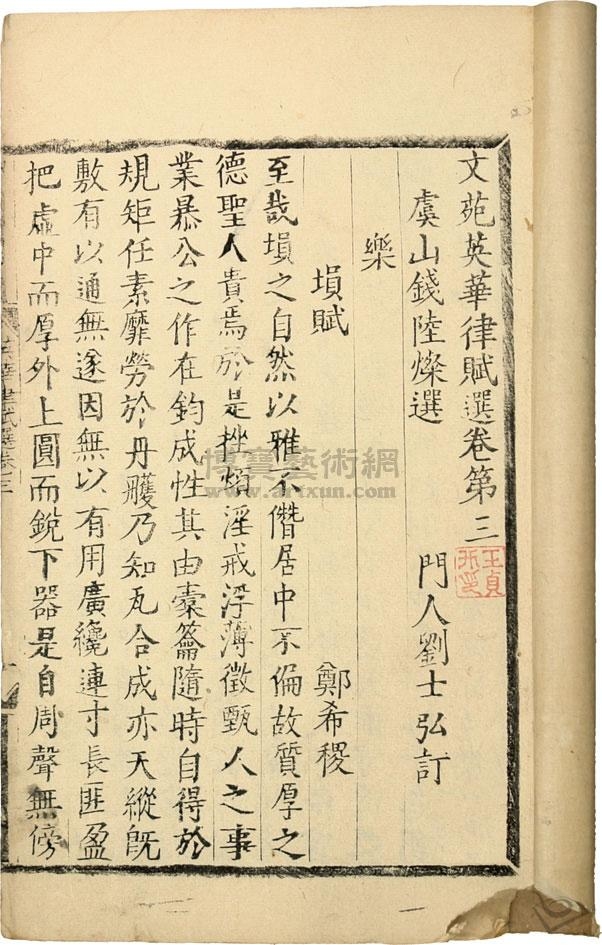 文苑英華律賦選卷第三
虞山錢陸燦選 門人劉士弘訂
樂
塤賦 鄭希稷
至哉塤之自然以雅不僭居中不偏故質厚之
德聖人貴焉於是挫煩淫戒浮薄徵甄人之事
業暴公之作在鈞成性其由橐籥隨時自得於
規矩任素靡勞於丹雘乃知瓦合成亦天縱旣
敷有以通無遂因無以有用廣纔連寸長匪盈
把虛中而厚外上圓而銳下器是自周聲無傍
英華律賦選卷三
王貞
博寶藝術網
www.artxun.com